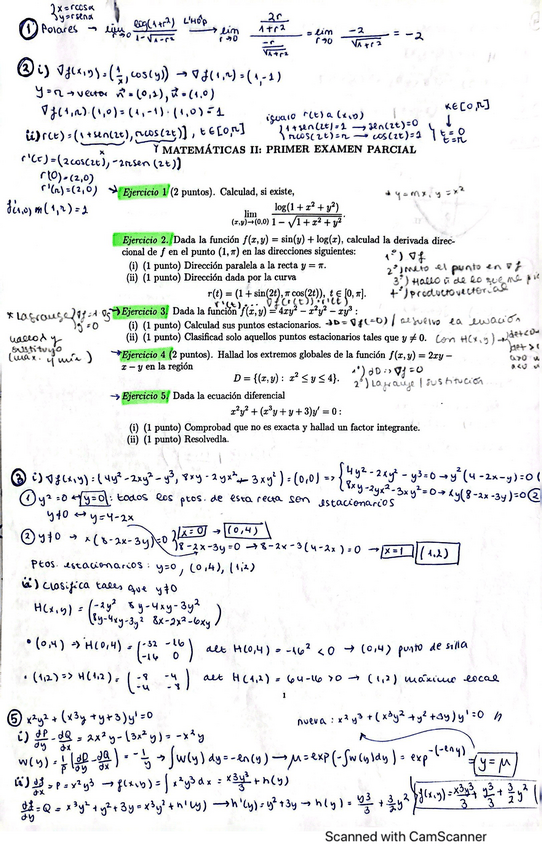 {x=rcosα
{y=rsenα
① Polares → lim r→0 log(1+r²)/1-√1-r² L'Hôp → lim r→0 2r/1+r² / -r/√1+r² = lim r→0 -2/√1+r² = -2
② i) ∇f(x,y) = (1/x, cos(y)) → ∇f(1,π) = (1,-1)
y=π → vector
∇f(1,π)·(1,0) = (1,-1)·(1,0) = 1
ii) r(t) = (1+sen(2t), πcos(2t)), t∈[0,π]
igualo r(t) a (x,y)
{1+sen(2t)=1 → sen(2t)=0
{πcos(2t)=π → cos(2t)=1
{t=0
t=π
MATEMÁTICAS II: PRIMER EXAMEN PARCIAL
r'(t) = (2cos(2t), -2πsen(2t))
r(0) = (2,0)
r'(π) = (2,0)
→ Ejercicio 1 (2 puntos). Calculad, si existe,
* y=mx, y=x²
lim (x,y)→(0,0) log(1 + x² + y²) / 1 − √1 + x² + y².
Ejercicio 2. Dada la función f(x, y) = sin(y) + log(x), calculad la derivada direc-
cional de f en el punto (1, π) en las direcciones siguientes:
(i) (1 punto) Dirección paralela a la recta y = π.
(ii) (1 punto) Dirección dada por la curva
r(t) = (1 + sin(2t), π cos(2t)), t ∈ [0, π].
1º) ∇f
2º) meto el punto en ∇f
4º) Producto vectorial
→ Ejercicio 3. Dada la función f(x, y) = 4xy² − x²y² − xy³ :
(i) (1 punto) Calculad sus puntos estacionarios.
(ii) (1 punto) Clasificad solo aquellos puntos estacionarios tales que y ≠ 0.
con H(x,y)
→ Ejercicio 4 (2 puntos). Hallad los extremos globales de la función f(x, y) = 2xy −
x − y en la región
D = {(x, y) : x² ≤ y ≤ 4}.
2º) Lagrange / sustitución
→ Ejercicio 5. Dada la ecuación diferencial
x²y² + (x³y + y + 3)y′ = 0 :
(i) (1 punto) Comprobad que no es exacta y hallad un factor integrante.
(ii) (1 punto) Resolvedla.
③ i) ∇f(x,y) = (4y²-2xy²-y³, 8xy-2yx²-3xy²) = (0,0) => {4y²-2xy²-y³=0 → y²(4-2x-y)=0 ①
{8xy-2yx²-3xy²=0 → xy(8-2x-3y)=0 ②
① y²=0 ↔ y=0: todos los ptos. de esta recta son estacionarios
y≠0 ↔ y=4-2x
② y≠0 → x(8-2x-3y)=0 } x=0 → (0,4)
8-2x-3y=0 → 8-2x-3(4-2x)=0 → x=1 (1,2)
Ptos. estacionarios: y=0, (0,4), (1,2)
ii) Clasifica tales que y≠0
H(x,y) = (-2y² 8y-4xy-3y²
8y-4xy-3y² 8x-2x²-6xy)
• (0,4) => H(0,4) = (-32 -16
-16 0) det H(0,4) = -16² < 0 → (0,4) punto de silla
• (1,2) => H(1,2) = (-8 -4
-4 -8) det H(1,2) = 64-16 > 0 → (1,2) máximo local
1
⑤ x²y² + (x³y + y + 3)y' = 0
nueva: x²y³ + (x³y² + y² + 3y)y' = 0
i) ∂P/∂y - ∂Q/∂x = 2x²y - (3x²y) = -x²y
W(y) = 1/P [∂P/∂y - ∂Q/∂x] = -1/y → ∫W(y)dy = -ln(y) → μ = exp(-∫W(y)dy) = exp^-(-lny) = y=μ
ii) ∂f/∂x = P = x²y³ → f(x,y) = ∫x²y³dx = x³y³/3 + h(y)
∂f/∂y = Q = x³y² + y² + 3y = x³y² + h'(y) → h'(y) = y² + 3y → h(y) = y³/3 + 3/2 y²
f(x,y) = x³y³/3 + y³/3 + 3/2 y²
Scanned with CamScanner